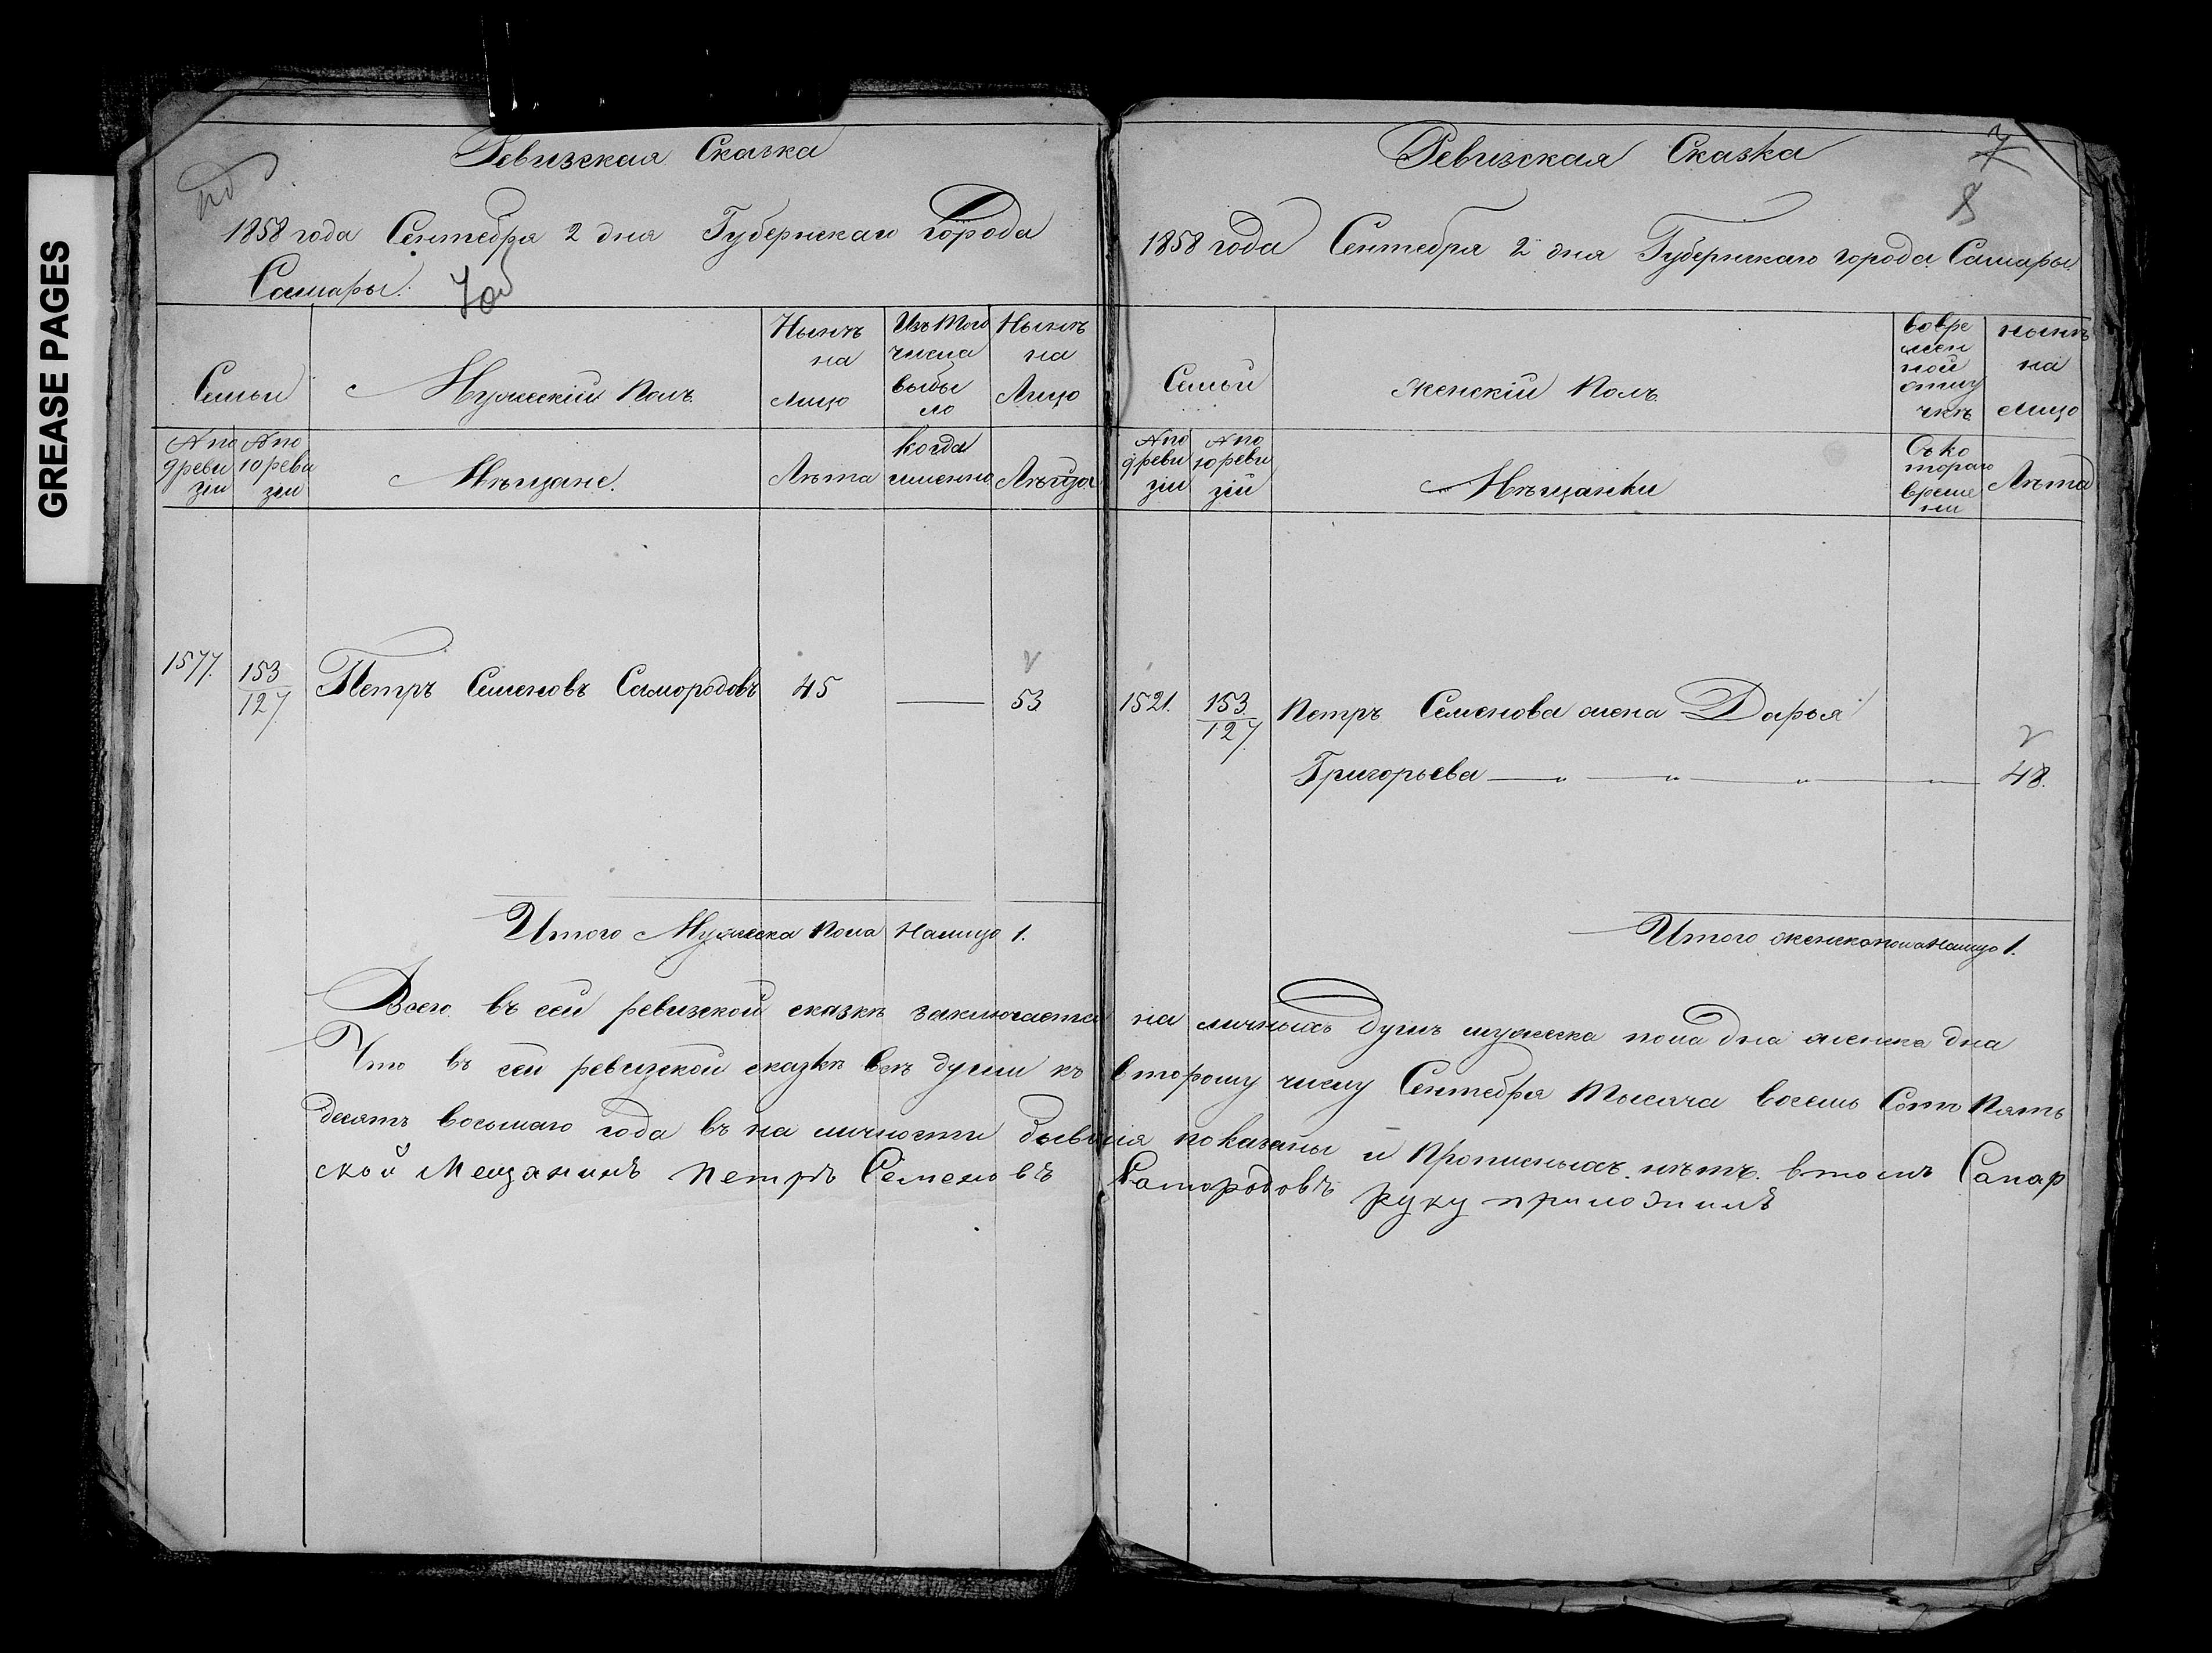 GREASE PAGES
Ревизская Сказка
1858 года Сентебря 2 дня Губернскаго Города
Самары.
Семьи
Мужескій Полъ
Нынѣ на Лицо
Изъ того числа выбы ло
Нынѣ на Лицо
№ по 9 реви зіи
№ по 10 реви зіи
Мѣщане.
Лѣта
когда именно
Лѣта
1577.
153
127
Петръ Семеновъ Самородовъ 45 — 53
Итого Мужеска Пола Налицо 1.
Ревизская Сказка
7
8
1858 года Сентебря 2 дня Губернскаго города Самары.
Семьи
Женскій Полъ.
вовре мен ной отлу чкѣ
нынѣ на лицо
№ по 9 реви зіи
№ по 10 реви зіи
Мѣщанки
Съ ко тораго време ни
Лѣта
1521.
153
127
Петръ Семенова жена Дарья
Григорьева — " — " — " — " — 48.
Итого женска пола налицо 1.
Всего въ сей ревизской сказкѣ заключается на личныхъ душъ мужеска пола дна женска дна
Что въ сей ревизской сказкѣ всѣ души къ второму числу Сентебря тысяча восемь Сотъ Пять
десятъ восьмаго года въ на личности бывшія показаны и Прописныхъ нѣтъ. втомъ Самар
ской Мещанинъ Петръ Семеновъ Самородовъ руку приложилъ